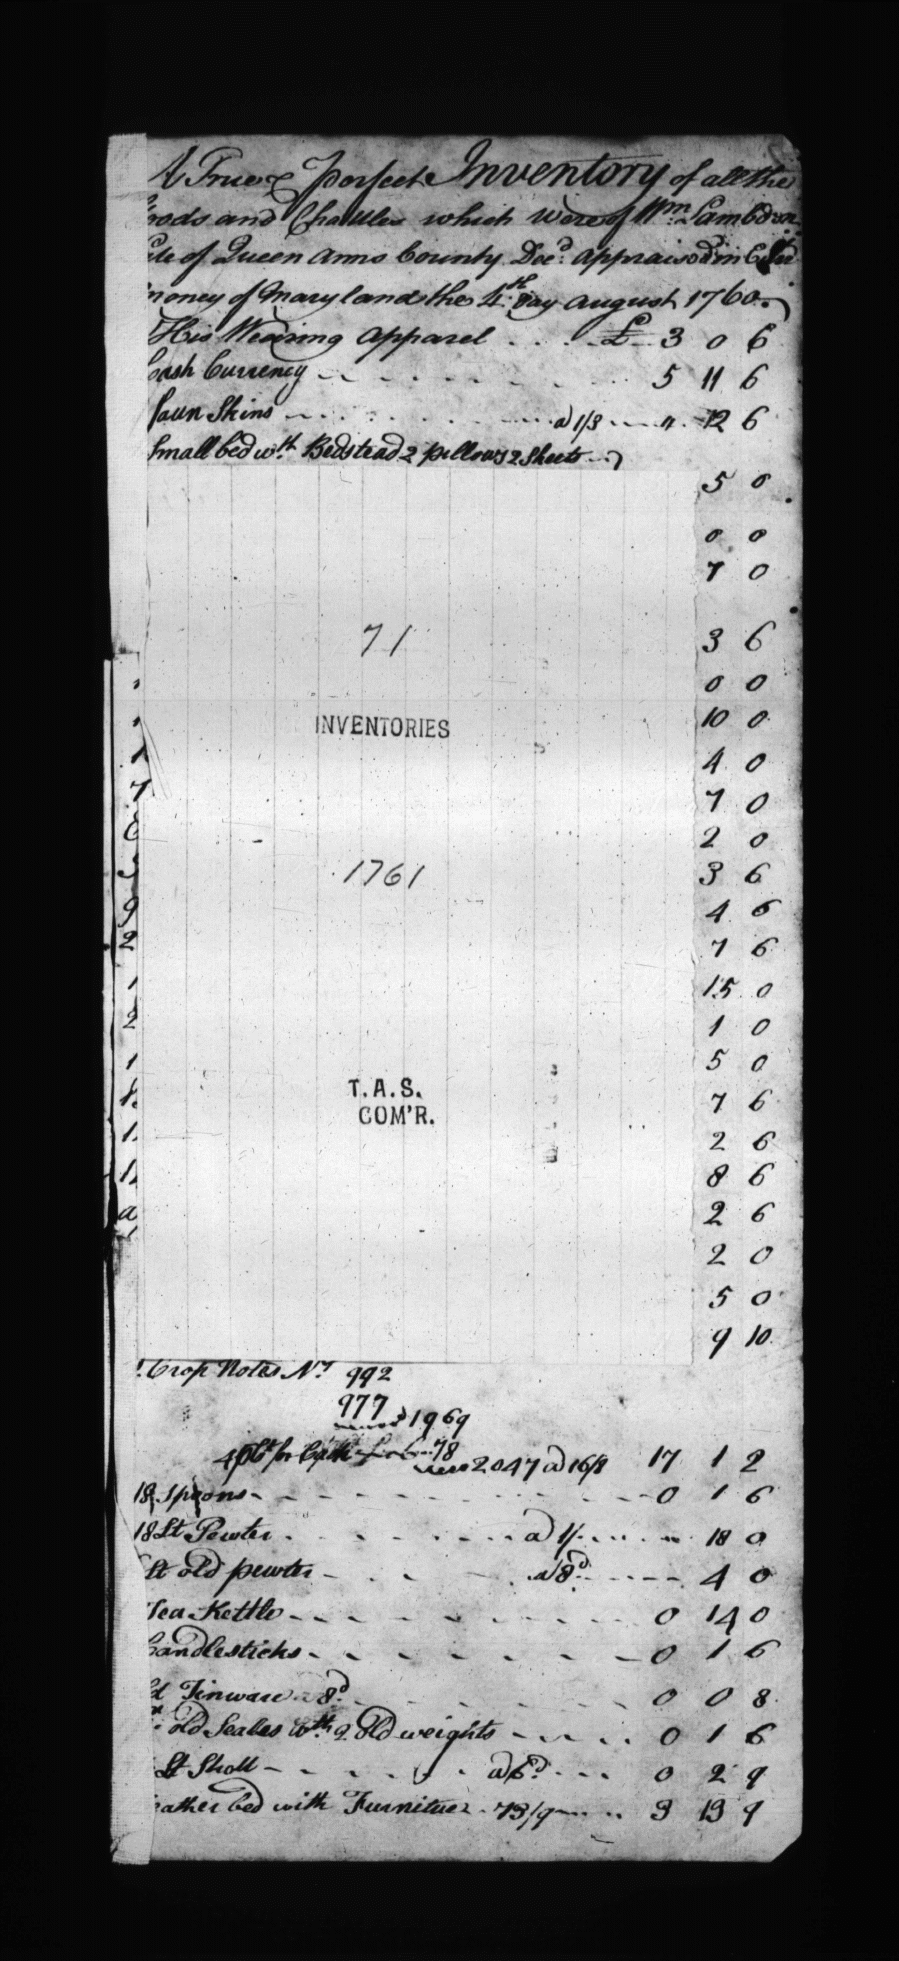 A True & Perfect Inventory of all the
oods and Chattles which were of Wm Lambdon
ate of Queen Anns County Decd. appraised in
money of Maryland the 4th Day August 1760
His Wearing Apparel . . . £ 3 0 6
Cash Currency 5 11 6
Faun Skins a 1/3 " 12 6
Small bed wth. Bedstead 2 pillows 2 Sheets
5 0
0 0
7 0
71
3 6
0 0
INVENTORIES
10 0
4 0
7 0
2 0
1761
3 6
4 6
7 6
15 0
1 0
5 0
T.A.S.
COM'R.
7 6
2 6
8 6
2 6
2 0
5 0
9 10
Crop Notes No. 992
977
1969
4 for Cask 78
2047 a 16/8 17 1 2
18 Spoons 0 1 6
18 Lt Pewter a 1/ 18 0
Lt old pewter a 8d 4 0
Tea Kettle 0 14 0
Candlesticks 0 1 6
d Tinware a 8d 0 0 8
old Scales wth. 2 old weights 0 1 6
Lt Shott a 6d. 0 2 9
eather bed with Furnitue 73/9 3 13 9